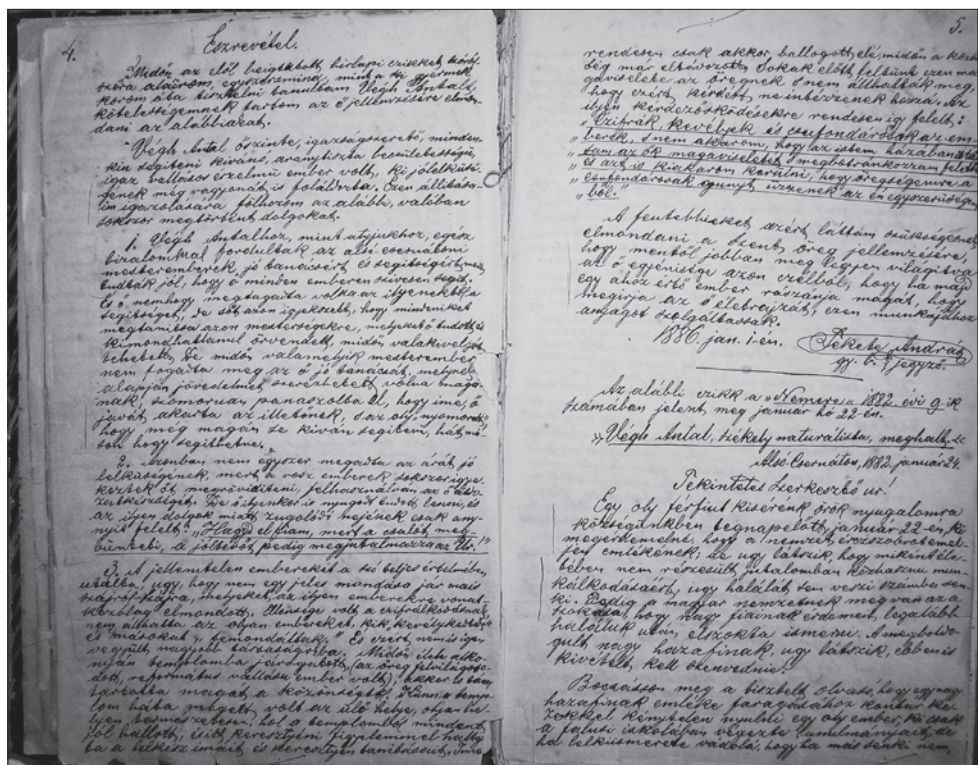 4.
Észrevétel.
Midőn az elől beigtatott, hirlapi czikeket
szóra aláirom, egyszersmind, mint a ki gyermek
korom óta tisztelni tanultam Végh Antalt,
kötelességemnek tartom az ő jellemzésére elmon-
dani az alábbiakat.
Végh Antal őszinte, igazságszerető, minden-
kin segiteni kivánó, aranytiszta becsületességü,
igaz vallásos érzelmü ember volt, ki jólelküsé-
gének még vagyonát is föláldozta. Ezen állitása-
im igazolására fölhozom az alábbi, valóban
sokszor megtörtént dolgokat.
1. Végh Antalhoz, mint atyjukhoz, egész
bizalommal fordultak az alsó csernátoni
mesteremberek, jó tanácsért és segitségért, mert
tudták jól, hogy ő minden emberen szivesen segit.
És ő nemhogy megtagadta volna az ilyenektől a
segitséget, de sőt azon igyekezett, hogy mindeniket
megtanitsa azon mesterségekre, melyeket ő tudott, és
kimondhatlanul örvendett, midőn valakivel jót
tehetett. De midőn valamelyik mesterember
nem fogadta meg az ő jó tanácsát, melynek
alapján jövedelmet szerezhetett volna magá-
nak, szomoruan panaszolta el, hogy ime, ő
javát akarta az illetőnek, s az oly nyomorult
hogy még magán se kiván segiteni, hát má-
son hogy segithetne.
2. Azonban nem egyszer megadta az árát jó
lelküségének, mert a rosz emberek sokszor igye-
keztek őt megröviditeni, felhasználván az ő
készségét. De ő ilyenkor is nyugodt tudott lenni, és
az ilyen dolgok miatt zugolódó nejének csak any-
nyit felelt: „Hagyd el fiam, mert a csalót meg-
bünteti, a jóltevőt pedig megjutalmazza az Ur!"
3. A jellemtelen embereket a szó teljes értelmében
utálta, ugy, hogy nem egy jeles mondása jár mais
szájról szájra, melyeket az ilyen emberekre vonat-
kozólag elmondott. Ellensége volt a czifrálkodásnak
nem álhatta az olyan embereket, kik kevélykedtek
és másokat „femondáltak." És ezért nem is igen
vegyült nagyobb társaságba. Midőn
templomba járdogatott, (az öreg felvilágoso-
dott, református vallásu ember volt), akkor is
tartotta magát a közönségtől. Künn, a temp-
lom háta mögött volt az ülő helye, olyan he-
lyen természetesen, hol a templomból mindent
jól hallott, s itt keresztyéni figyelemmel hallgat-
ta a lelkész imáit és keresztyén tanitásait,
5.
rendesen csak akkor ballogott elé, midőn a közön-
ség már eltávozott. Sokak előtt feltünt ezen ma-
gaviselete az öregnek s nem állhatták meg,
hogy ezért kérdést ne intézzenek hozzá. Az
ilyen kérdezősködésekre rendesen igy felelt:
„Czifrák, kevélyek és csufondárosak az em-
„berek, s nem akarom, hogy az istem házában
„tam az ők magaviseletén megbotránkozzam
„és azt is kiakarom kerülni, hogy öregségemre a
„csufondárosok gunyt űzzenek az én egyszerüségem-
„ből."
A fentebbieket azért láttam szükségesnek
elmondani a szent öreg jellemzésére,
hogy mentől jobban meg legyen világitva
az ő egyénisége azon czélból, hogy ha majd
egy ahoz értő ember rászánja magát, hogy
megirja az ő életrajzát, ezen munkájához
anyagot szolgáltassak.
1886. jan. 1-én. Fekete András
jegyző.
Az alábbi czikk a „Nemere" 1882. évi 9-ik
számában jelent meg január hó 22-én.
„Végh Antal, székely naturálista, meghalt."
Alsó Csernáton, 1882. január 24.
Tekintetes Szerkesztő ur!
Egy oly férfiut kisérénk örök nyugalomra
községünkben tegnapelőtt, január 22-én, ki
megérdemelné, hogy a nemzet érczszobrot emel-
jen emlékének; de ugy látszik, hogy miként éle-
tében nem részesült jutalomban közhasznu mun-
kálkodásáért, ugy halálát sem veszi számba sen-
ki. Pedig a magyar nemzetnek megvan az a
szokása, hogy nagy fiainak érdemeit legalább
haláluk után elszokta ismerni. A megboldo-
gult nagy hazafinak, ugy látszik, ebben is
kivételt kell szenvednie.
Bocsásson meg a tisztelt olvasó, hogy egy nagy
hazafinak emléke faragásához kontár ke-
zekkel kénytelen nyulni egy oly ember, ki csak
a falusi iskolában végezte tanulmányait, de
ha lelkiismerete vádolá, hogy ha más senki nem,